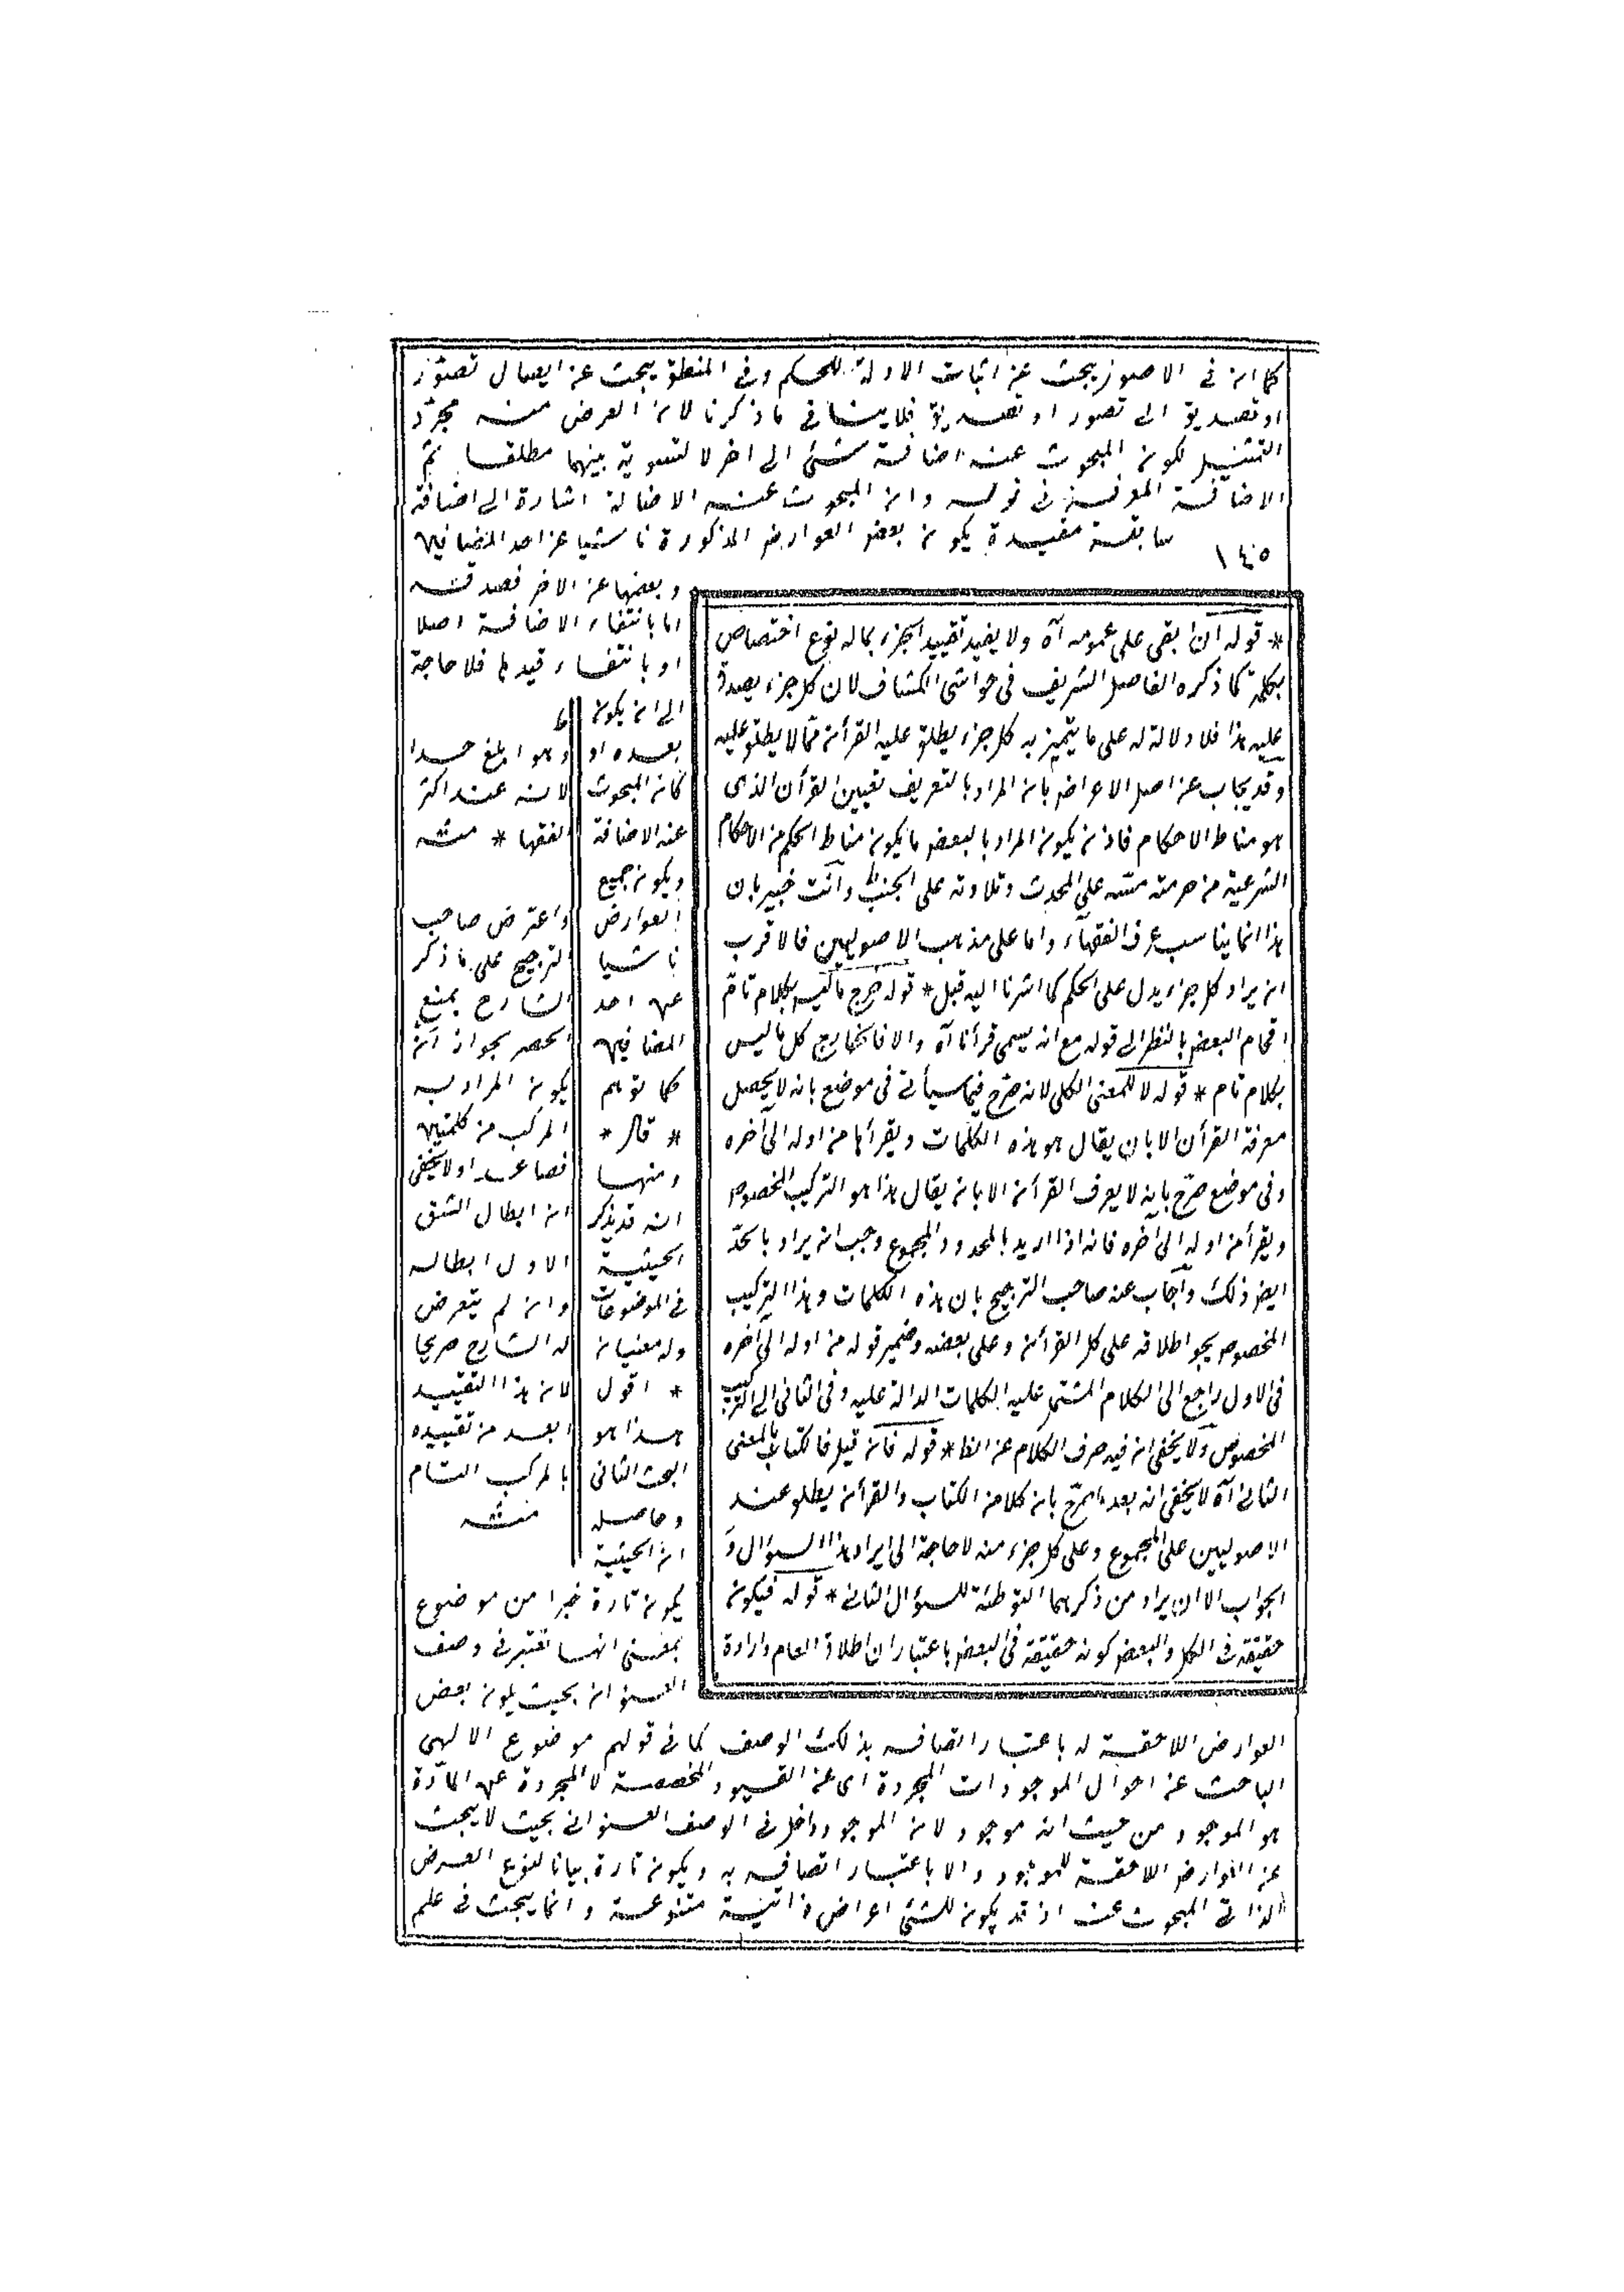 كما ان فى الاصول يبحث عن اثبات الادلة للحكم وفى المنطق يبحث عن ايصال تصور
او تصديق الى تصور او تصديق فلا ينافى ما ذكرنا لان الغرض منه مجرّد
التمثيل لكون المبحوث عنه اضافة شئ الى اخر لا لتسوية بينهما مطلقا ثم
الاضافة المعرفة فى قوله وان المبحوث عنه الاضافة اشارة الى اضافة
سابقة مقيدة بكون بعض العوارض المذكورة ناشيا عن احد المضافين
١٤٥
وبعضها عن الاخر فصدقه
اما بانتفاء الاضافة اصلا
او بانتفاء قيدها فلا حاجة
الى ان يكون
بعده او
كان المبحوث
عنه الاضافة
ويكون جميع
العوارض
ناشيا
عن احد
المضافين
كما توهم
* قال *
ومنها
انه قد يذكر
الحيثية
فى الموضوعات
وله معنيان
* اقول
هذا هو
البحث الثانى
وحاصله
ان الحيثية
يكون تارة خبرا من موضوع
بمعنى انها تعتبر فى وصف
العنوان بحيث يكون بعض
العوارض اللاحقة له باعتبار اتصافه بذلك الوصف كما فى قولهم موضوع الالهى
الباحث عن احوال الموجودات المجردة اى عن القيود المخصصة لا المجردة عن المادّة
هو الموجود من حيث انه موجود لان الموجود داخل فى الوصف العنوانى بحيث لا يبحث
عن العوارض اللاحقة للموجود والا باعتبار اتصافه به ويكون تارة بيانا لنوع العرض
الذاتى المبحوث عنه اذ قد يكون للشئ اعراض ذاتية متنوعة وانما يبحث فى علم
وهو ابلغ حسدا
لانه عند اكثر
الفقها * منه
واعترض صاحب
الترجيح على ما ذكر
الشارح بمنع
الحصر بجواز ان
يكون المراد به
المركب من كلمتين
فصاعدا ولا يخفى
ان ابطال الشق
الاول ابطاله
وان لم يتعرض
له الشارح صريحا
لان هذا التقييد
ابعد من تقييده
بالمركب التام
منه
* قوله ان ابقى على عمومه آه ولا يفيد تقييد الجزء بماله نوع اختصاص
بكلمة كما ذكره الفاضل الشريف فى حواشى الكشاف لان كل جزء يصدق
عليه هذا فلا دلالة له على ما يتميز به كل جزء يطلق عليه القرأن ممّا لا يطلق عليه
وقد يجاب عن اصل الاعراض بان المراد بالتعريف تعيين القرأن الذى
هو مناط الاحكام فاذن يكون المراد بالبعض ما يكون مناط الحكم من الاحكام
الشرعية من حرمة مسّه على المحدث وتلاوته على الجنب وانت خبير بان
هذا انما يناسب عرف الفقهاء واما على مذهب الاصوليين فالاقرب
ان يراد كل جزء يدل على الحكم كما اشرنا اليه قبل * قوله خرج ما ليس بكلام تامّ
اقحام البعض بالنظر الى قوله مع انه يسمى قرأنا آه والا فالخارج كل ما ليس
بكلام تام * قوله لا للمعنى الكلى لانه صرّح فيما سيأتى فى موضع بانه لا يحصل
معرفة القرأن الا بان يقال هو هذه الكلمات ويقرأها من اوله الى آخره
وفى موضع صرّح بانه لا يعرف القرأن الا بان يقال هذا هو التركيب المخصوص
ويقرأ من اوله الى آخره فانه اذا اريد بالمحدود المجموع وجب ان يراد بالحدّ
ايضا ذلك واجاب عنه صاحب الترجيح بان هذه الكلمات وهذا التركيب
المخصوص يجوز اطلاقه على كل القرأن وعلى بعضه وضمير قوله من اوله الى آخره
فى الاول راجع الى الكلام المشتمل عليه الكلمات الدالة عليه وفى الثانى الى التركيب
المخصوص ولا يخفى ان فيه صرف الكلام عن الظا * قوله فان قيل فالكتاب بالمعنى
الثانى آه لا يخفى انه بعد ما صرّح بان كلا من الكتاب والقرأن يطلق عند
الاصوليين على المجموع وعلى كل جزء منه لا حاجة الى ايراد هذا السؤال وَ
الجواب الا ان يراد من ذكرهما التوطئة للسؤال الثانى * قوله فيكون
حقيقة فى الكل والبعض كونه حقيقة فى البعض باعتبار ان اطلاق العام وارادة